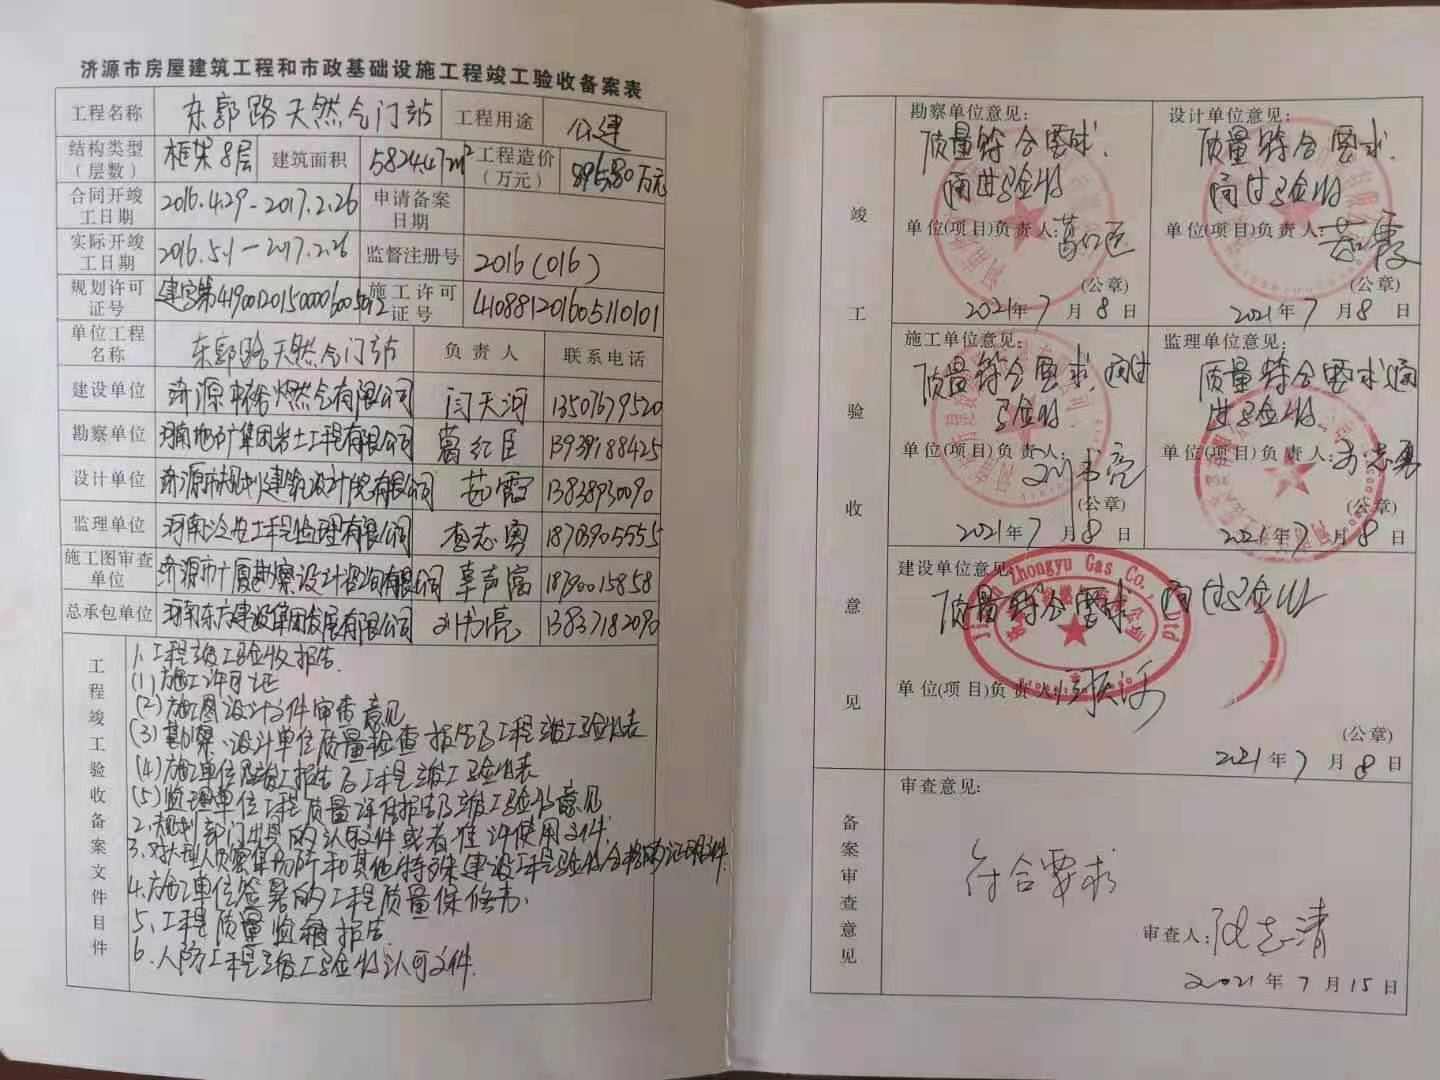 济源市房屋建筑工程和市政基础设施工程竣工验收备案表
工程名称 东郭路天然气门站 工程用途 公建
结构类型（层数） 框架8层 建筑面积 5824.47m² 工程造价（万元） 万元
合同开竣工日期 2016.4.29-2017.2.26 申请备案日期
实际开竣工日期 2016.5.1-2017.2.26 监督注册号 2016(016)
规划许可证号 施工许可证号 410881201605110101
单位工程名称 东郭路天然气门站 负责人 联系电话
建设单位 燃气有限公司 闫天河 13507679520
勘察单位 河南地矿集团岩土工程有限公司 葛红臣 13939188425
设计单位 济源市规划建筑设计院有限公司 茹霞 13838930090
监理单位 工程监理有限公司 李志勇 18703905555
施工图审查单位 勘察设计咨询有限公司
总承包单位 河南东方建设集团发展有限公司 刘书亮 13837182090
工程竣工验收备案文件目件
1.工程竣工验收报告.
(1)施工许可证
(2)施工图设计文件审查意见
(3)勘察、设计单位质量检查报告及工程竣工验收表
(4)施工单位及竣工报告及工程竣工验收表
(5)监理单位工程质量评估报告及竣工验收意见
2.规划部门出具的认可文件或者准许使用文件.
3.对大型人员密集场所和其他特殊建设工程验收合格的证明文件.
4.施工单位签署的工程质量保修书.
5.工程质量监督报告.
6.人防工程竣工验收认可文件.
竣工验收意见
勘察单位意见:
质量符合要求.
通过验收
单位(项目)负责人: 葛红臣
(公章)
2021年7月8日
设计单位意见:
质量符合要求.
通过验收
单位(项目)负责人: 茹霞
(公章)
2021年7月8日
施工单位意见:
质量符合要求,通过
验收
单位(项目)负责人: 刘书亮
(公章)
2021年7月8日
监理单位意见:
质量符合要求通
过验收
单位(项目)负责人: 李志勇
(公章)
2021年7月8日
建设单位意见:
质量符合要求. 通过验收
Zhongyu Gas Co., Ltd
单位(项目)负责人: 闫天河
(公章)
2021年7月8日
备案审查意见
审查意见:
符合要求
审查人:
2021年7月15日